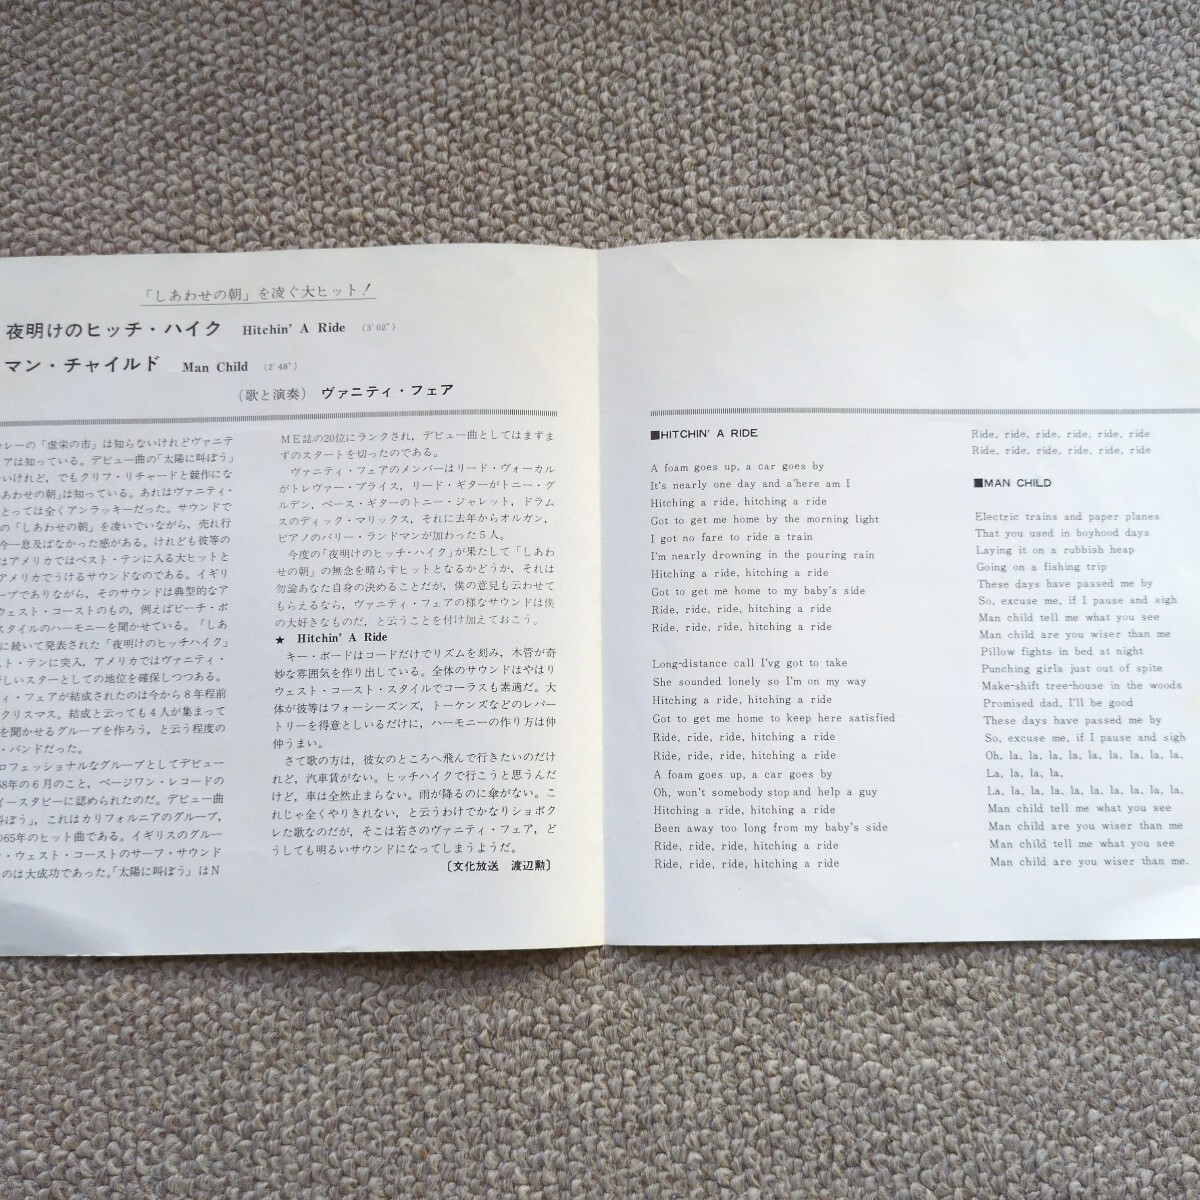 「しあわせの朝」を凌ぐ大ヒット!
夜明けのヒッチ・ハイク Hitchin' A Ride (3'02")
マン・チャイルド Man Child (2'48")
(歌と演奏) ヴァニティ・フェア
カレーの「虚栄の市」は知らないけれどヴァニテ
ェアは知っている。デビュー曲の「太陽に叫ぼう」
いけれど,でもクリフ・リチャードと競作にな
あわせの朝」は知っている。あれはヴァニティ・
とっては全くアンラッキーだった。サウンドで
の「しあわせの朝」を凌いでいながら,売れ行
今一息及ばなかった感がある。けれども彼等の
はアメリカではベスト・テンに入る大ヒットと
アメリカでうけるサウンドなのである。イギリ
ープでありながら,そのサウンドは典型的なア
ウェスト・コーストのもの,例えばビーチ・ボ
スタイルのハーモニーを聞かせている。「しあ
に続いて発表された「夜明けのヒッチハイク」
スト・テンに突入,アメリカではヴァニティ・
新しいスターとしての地位を確保しつつある。
ィ・フェアが結成されたのは今から8年程前
クリスマス。結成と云っても4人が集まって
を聞かせるグループを作ろう,と云う程度の
・バンドだった。
ロフェッショナルなグループとしてデビュー
68年の6月のこと,ページワン・レコードの
イースタビーに認められたのだ。デビュー曲
叫ぼう」,これはカリフォルニアのグループ,
の65年のヒット曲である。イギリスのグルー
・ウェスト・コーストのサーフ・サウンド
のは大成功であった。「太陽に叫ぼう」はN
ME誌の20位にランクされ,デビュー曲としてはまずま
ずのスタートを切ったのである。
ヴァニティ・フェアのメンバーはリード・ヴォーカル
がトレヴァー・ブライス,リード・ギターがトニー・グ
ルデン,ベース・ギターのトニー・ジャレット,ドラム
スのディック・マリックス,それに去年からオルガン,
ピアノのバリー・ランドマンが加わった5人。
今度の「夜明けのヒッチ・ハイク」が果たして「しあわ
せの朝」の無念を晴らすヒットとなるかどうか,それは
勿論あなた自身の決めることだが,僕の意見も云わせて
もらえるなら,ヴァニティ・フェアの様なサウンドは僕
の大好きなものだ,と云うことを付け加えておこう。
★ Hitchin' A Ride
キー・ボードはコードだけでリズムを刻み,木管が奇
妙な雰囲気を作り出している。全体のサウンドはやはり
ウェスト・コースト・スタイルでコーラスも素適だ。大
体が彼等はフォーシーズンズ,トーケンズなどのレパー
トリーを得意としいるだけに,ハーモニーの作り方は仲
仲うまい。
さて歌の方は,彼女のところへ飛んで行きたいのだけ
れど,汽車賃がない。ヒッチハイクで行こうと思うんだ
けど,車は全然止まらない。雨が降るのに傘がない。こ
れじゃ全くやりきれない,と云うわけでかなりショボク
レた歌なのだが,そこは若さのヴァニティ・フェア,ど
うしても明るいサウンドになってしまうようだ。
〔文化放送 渡辺勲〕
■HITCHIN' A RIDE
A foam goes up, a car goes by
It's nearly one day and a'here am I
Hitching a ride, hitching a ride
Got to get me home by the morning light
I got no fare to ride a train
I'm nearly drowning in the pouring rain
Hitching a ride, hitching a ride
Got to get me home to my baby's side
Ride, ride, ride, hitching a ride
Ride, ride, ride, hitching a ride
Long-distance call I'vg got to take
She sounded lonely so I'm on my way
Hitching a ride, hitching a ride
Got to get me home to keep here satisfied
Ride, ride, ride, hitching a ride
Ride, ride, ride, hitching a ride
A foam goes up, a car goes by
Oh, won't somebody stop and help a guy
Hitching a ride, hitching a ride
Been away too long from my baby's side
Ride, ride, ride, hitching a ride
Ride, ride, ride, hitching a ride
Ride, ride, ride, ride, ride, ride
Ride, ride, ride, ride, ride, ride
■MAN CHILD
Electric trains and paper planes
That you used in boyhood days
Laying it on a rubbish heap
Going on a fishing trip
These days have passed me by
So, excuse me, if I pause and sigh
Man child tell me what you see
Man child are you wiser than me
Pillow fights in bed at night
Punching girls just out of spite
Make-shift tree-house in the woods
Promised dad, I'll be good
These days have passed me by
So, excuse me, if I pause and sigh
Oh, la, la, la, la, la, la, la, la, la,
La, la, la, la,
La, la, la, la, la, la, la, la, la, la,
Man child tell me what you see
Man child are you wiser than me
Man child tell me what you see
Man child are you wiser than me.